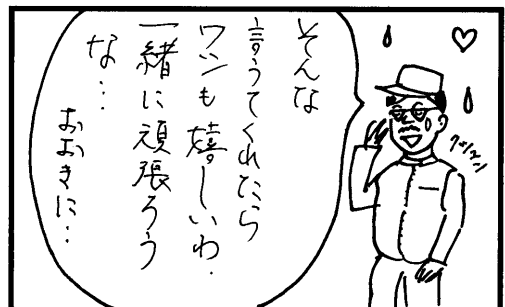 そんな
言うてくれたら
ワシも嬉しいわ.
一緒に頑張ろう
な…
おおきに…